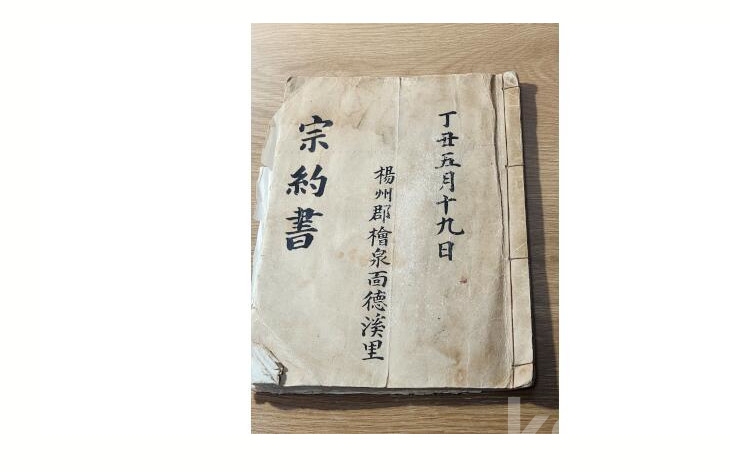 丁丑五月十九日
楊州郡檜泉面德溪里
宗約書